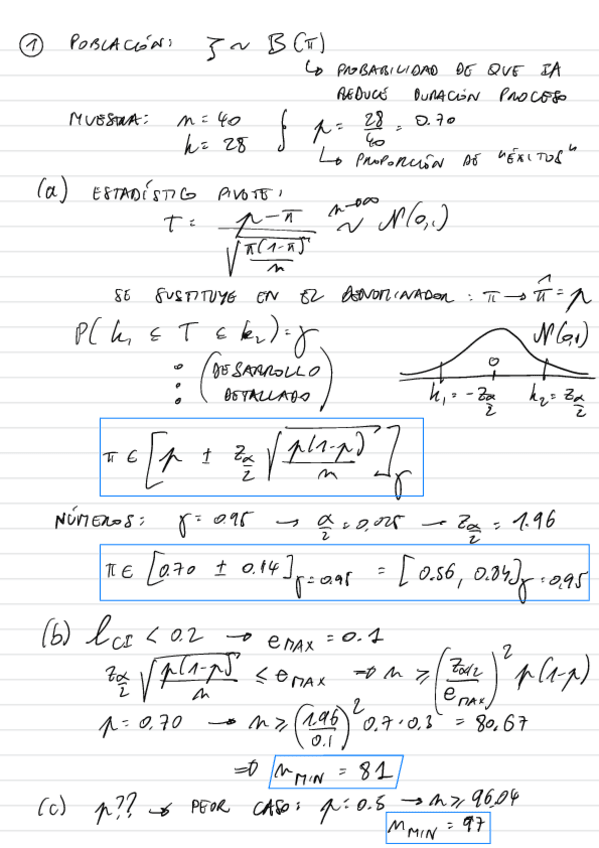 ① POBLACIÓN: ξ ~ B(π)
↳ PROBABILIDAD DE QUE IA
REDUCE DURACIÓN PROCESO
MUESTRA: n = 40
k = 28 } p = 28/40 = 0.70
↳ PROPORCIÓN DE "ÉXITOS"
(a) ESTADÍSTICO PIVOTE:
T = (p - π) / √(π(1-π)/n) ~ N(0,1) n→∞
SE SUSTITUYE EN EL DENOMINADOR: π → π̂ = p
P(k₁ ≤ T ≤ k₂) = γ
N(0,1)
0
(DESARROLLO
DETALLADO)
k₁ = -z_{α/2} k₂ = z_{α/2}
π ∈ [p ± z_{α/2} √(p(1-p)/n)]_γ
NÚMEROS: γ = 0.95 → α/2 = 0.025 → z_{α/2} = 1.96
π ∈ [0.70 ± 0.14]_{γ=0.95} = [0.56, 0.84]_{γ=0.95}
(b) l_{CI} < 0.2 → e_{MAX} = 0.1
z_{α/2} √(p(1-p)/n) ≤ e_{MAX} ⇒ n ≥ (z_{α/2}/e_{MAX})² p(1-p)
p = 0.70 → n ≥ (1.96/0.1)² 0.7·0.3 = 80.67
⇒ n_{MIN} = 81
(c) p?? → PEOR CASO: p = 0.5 → n ≥ 96.04
n_{MIN} = 97